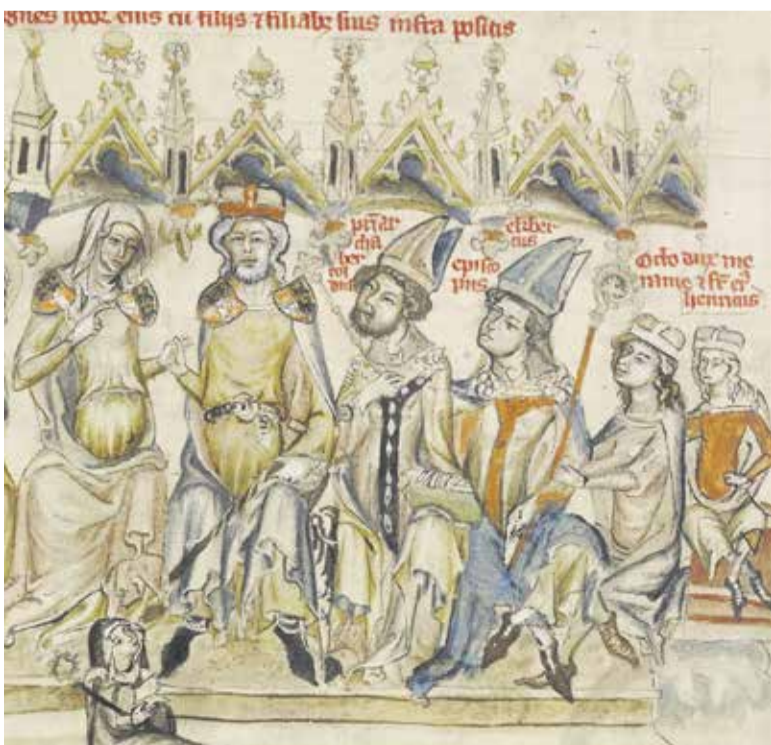 gnes uxor eius cū filijs ⁊ filiabꝫ suis infra positis
pr̄iar
cha
ber
tol
dus
ekber
tus
episco
pus
Octo dux me
ranie ⁊ fr̄ eiꝰ
henricus